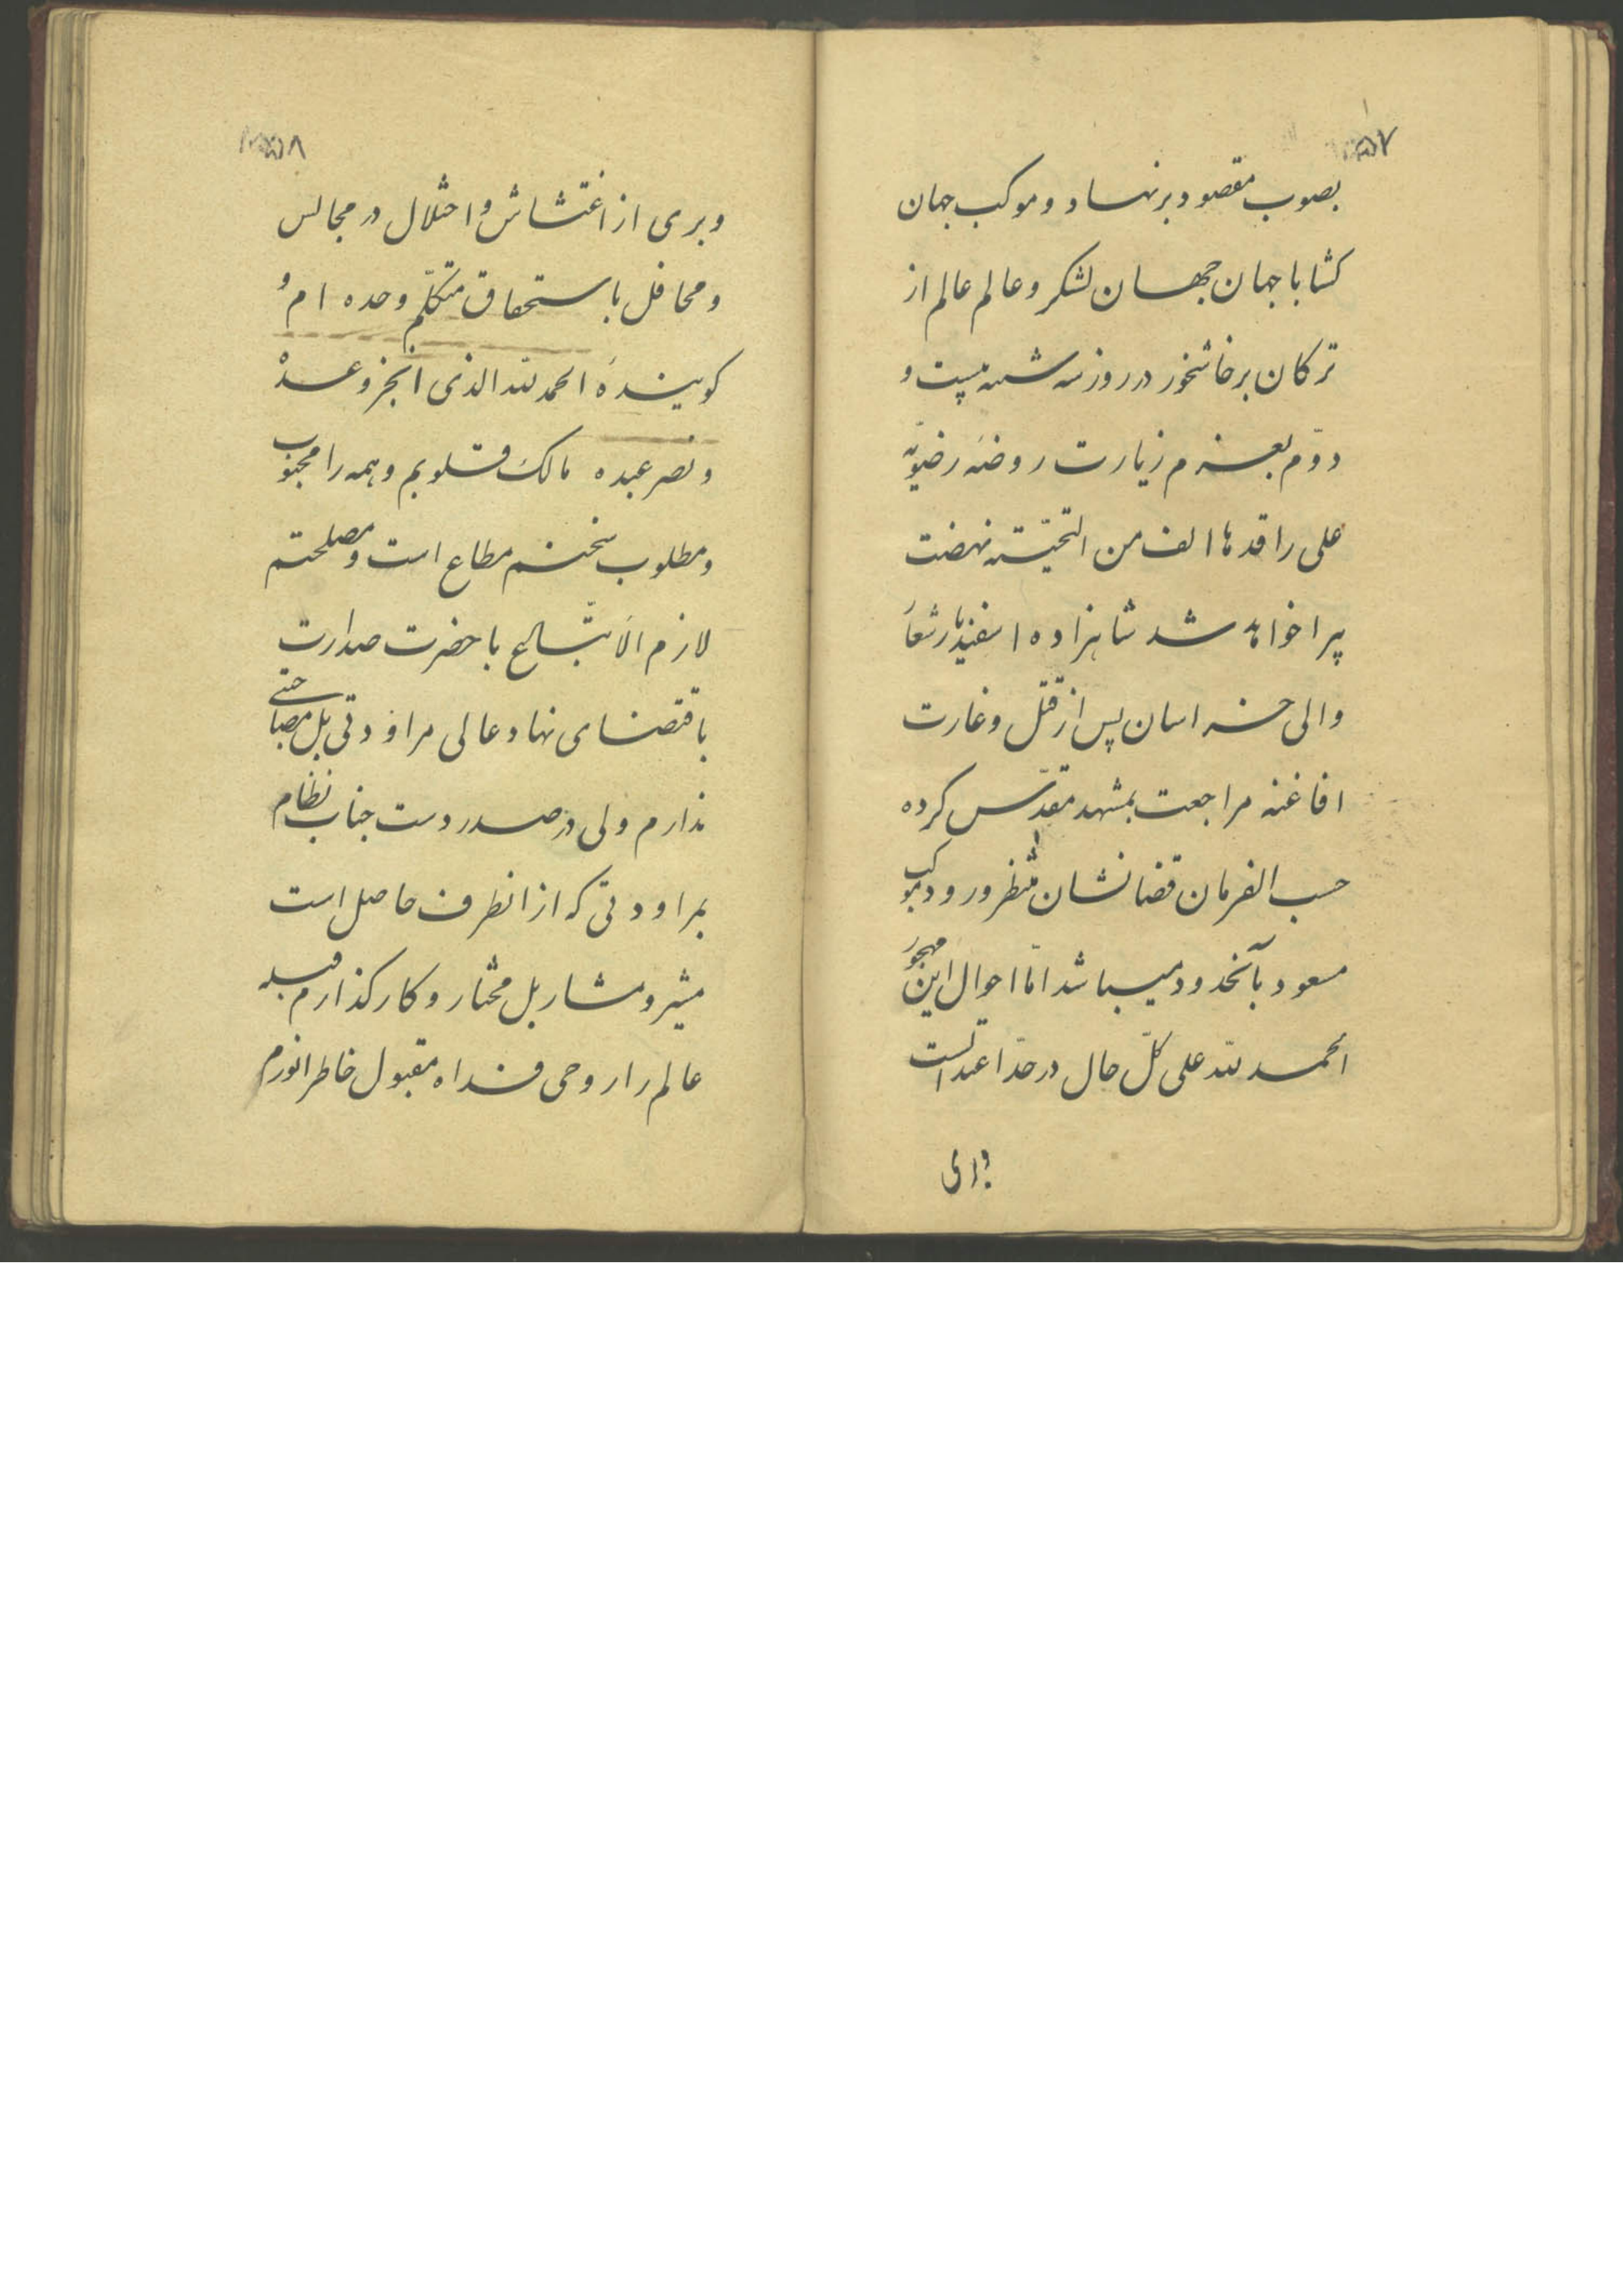 ۵۷
بصوب مقصود برنهاد و موکب جهان
کشا با جهان جهان لشکر و عالم عالم از
ترکان پرخاشخور در روز سه شنبه بیست و
دوّم بعزم زیارت روضهٔ رضویّه
علی راقدها الف من التحیّته نهضت
پیرا خواهد شد شاهزاده اسفندیار شعار
والی خراسان پس از قتل و غارت
افاغنه مراجعت بمشهد مقدّس کرده
حسب الفرمان قضا نشان منتظر ورود موکب
مسعود بآنحدود میباشد امّا احوال این مهجور
الحمد لله علی کلّ حال در حدّ اعتدالست
و بری
۵۸
و بری از اغتشاش و اختلال در مجالس
و محافل باستحقاق متکلّم وحده ام و
کویندهٔ الحمد لله الذی انجز وعده
و نصر عبده مالک قلوبم و همه را محبوب
و مطلوب سخنم مطاع است و مصلحتم
لازم الاتّباع با حضرت صدارت
باقتضای نهاد عالی مراودتی بل مصاحبتی
ندارم ولی در صدر دست جناب نظام
بمراودتی که از انطرف حاصل است
مشیر و مشار بل مختار و کارکذارم قبله
عالم را روحی فداه مقبول خاطر انورم